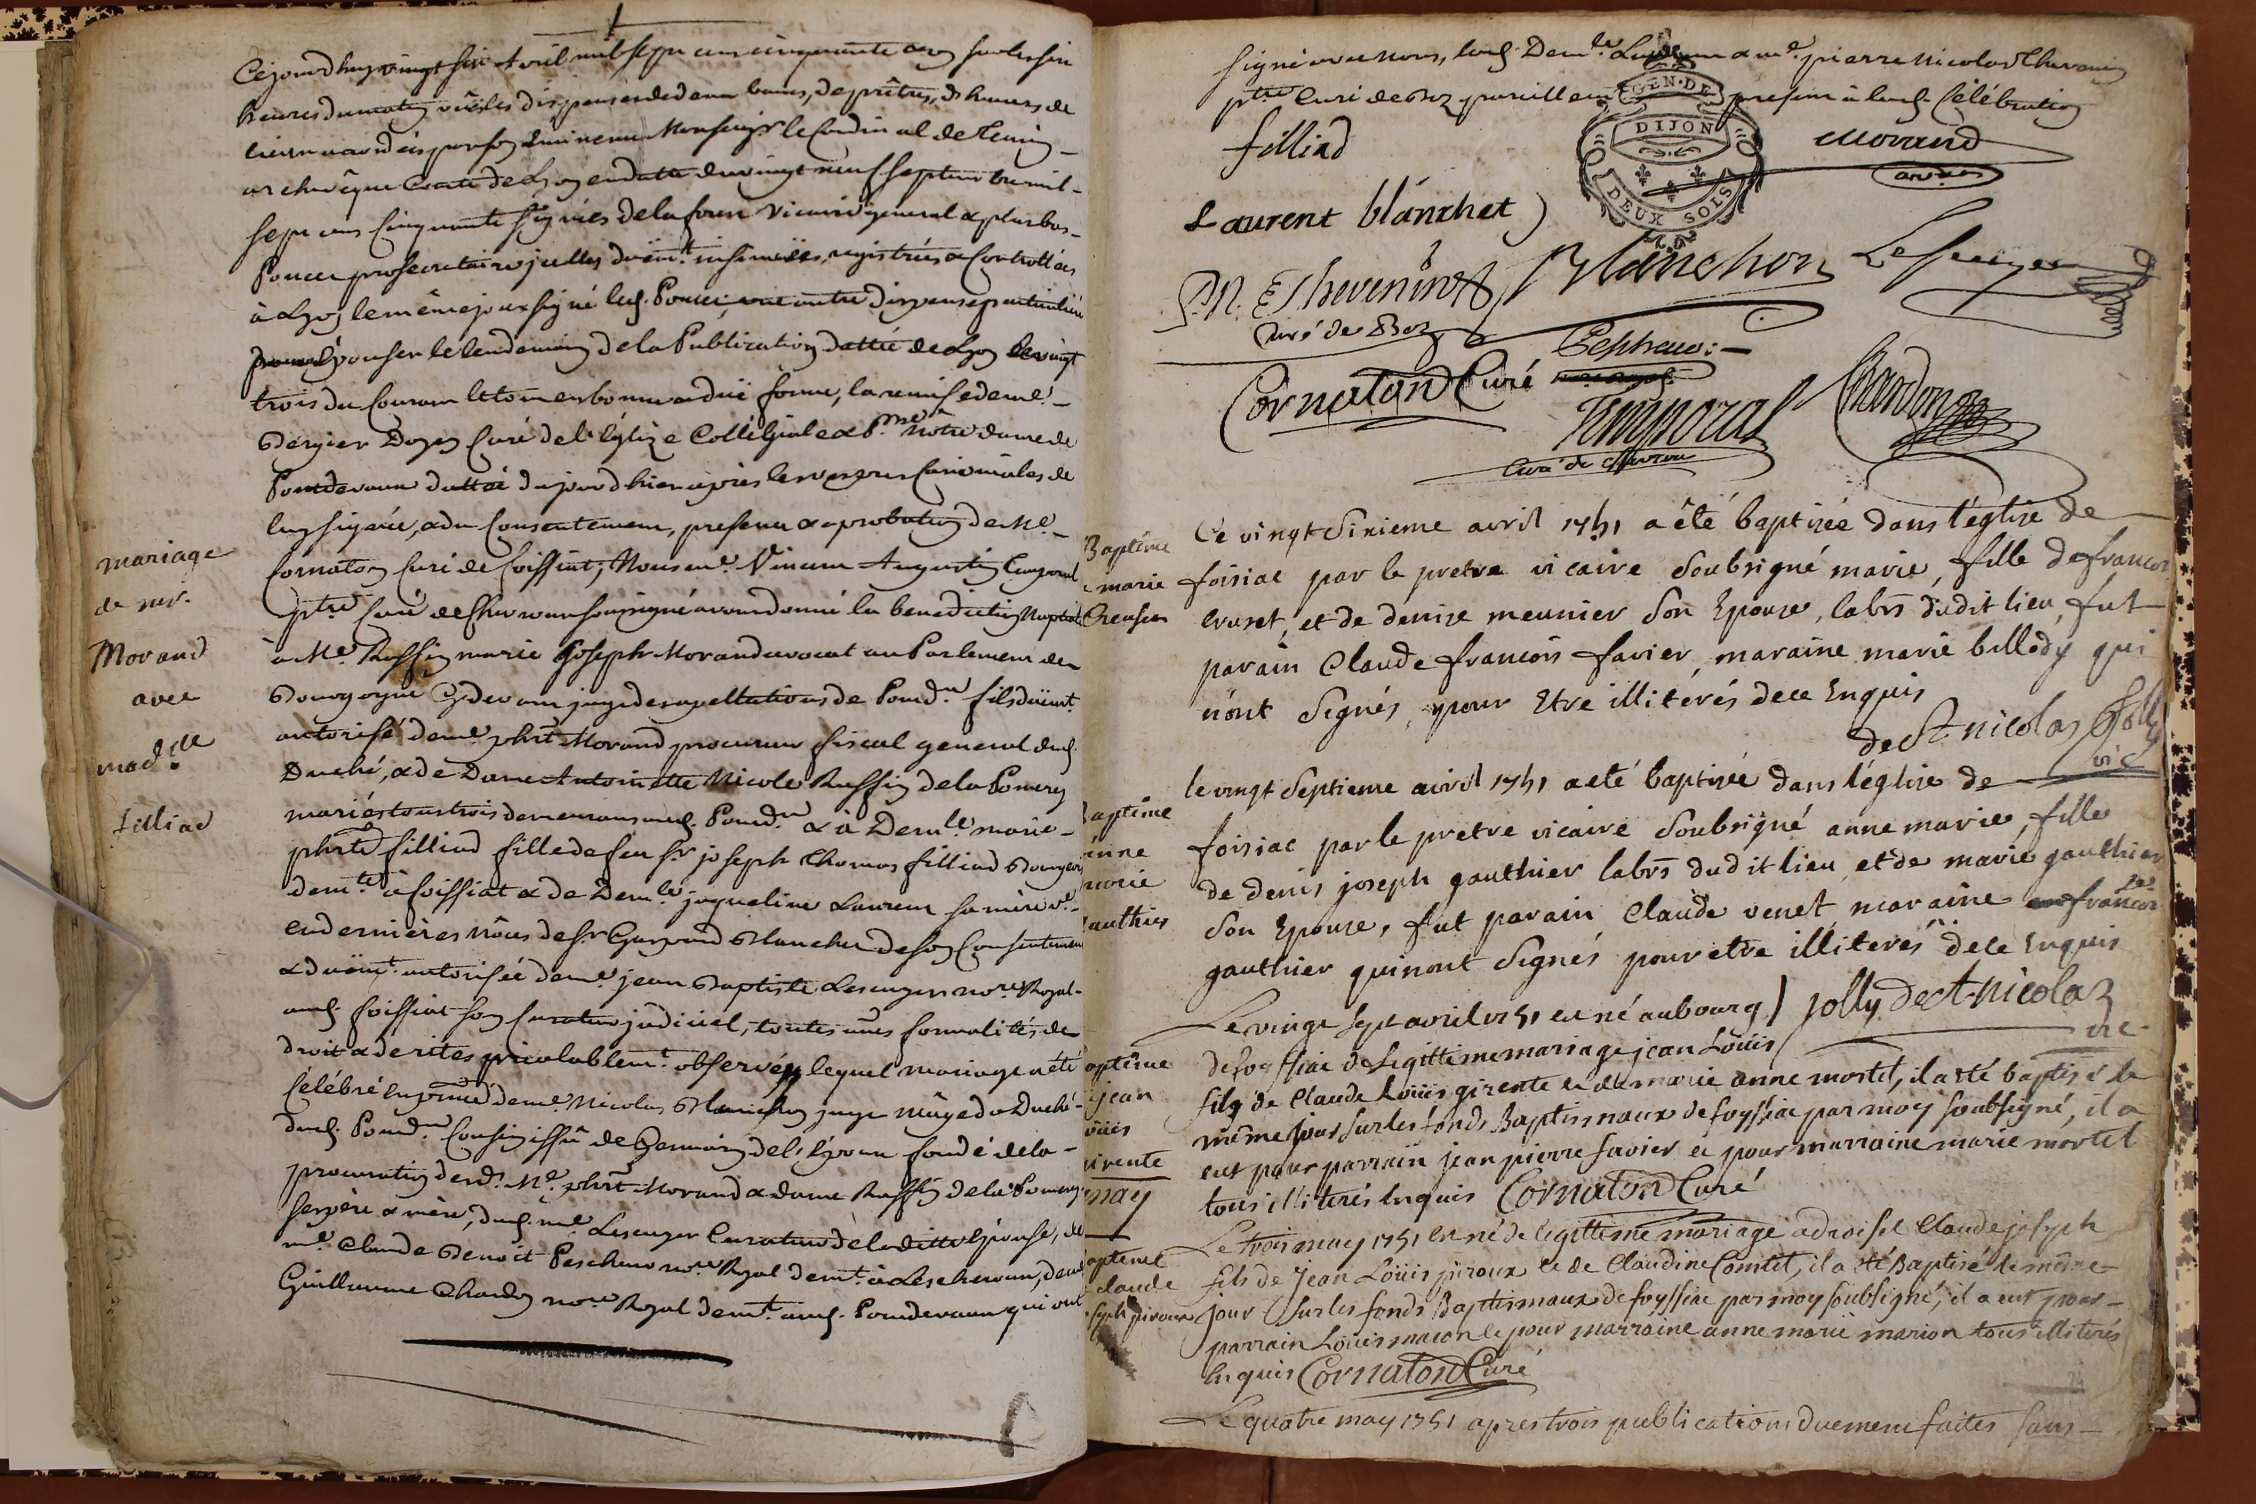 Cejourdhuy vingt six Avril mil sept cens cinquante un sur les six
heures du matin vû les dispenses de deux bans, de prêtres, d'heures &
lieu accordées par son Eminence Monseigr. le Cardinal de Tencin
archevêque Comte de Lyon en datte du vingt neuf septembre mil
sept cens cinquante signées de la forest vicaire general & plus bas
Poncet prosecretaire icelles duëmt. insinuées, registrées & controllées
à Lyon le même jour signé led. Poncet, une autre dispense particuliere
pour Epouser le lendemain de la Publication dattée de Lyon le vingt
trois du Courant le tout en bonne et duë forme, la remise de me.
Bergier Doyen Curé de l'église Collégiale & P. notre dame de
Pontdevaux dattée du jour d'hier après les vespres
luy signée, & du Consentement, presence & aprobation de Me.
Cornaton Curé de Foissiat; Nous me. Vincent Augustin Temporal
ptre. Curé de Chevroux soussigné avons donné la benediction Nuptiale
à Me. Ruffin marie Joseph Morand avocat au Parlement de
Bourgogne Cy devant juge des apellations de Pontd. fils duëmt.
autorisé de me. phrt. Morand procureur fiscal general dud.
Duché, & de Dame Antoinette Nicole Ruffin de la Pomerey
mariés tous trois demeurans aud. Pontd. & à Demlle. marie
phrte. filliad fille de feu Sr. joseph Thomas filliad Bourgeois
demt. à foissiat & de Demlle. jaqueline Laurent sa mère ve.
en dernières nôces de Sr. Gaspard Blanchet de son Consentement
& duëmt. autorisée de me. jean Baptiste Lescuyer nore. Royal
aud. foissiat son Curateur judiciel, toutes formalités de
droit & de rites préalablemt. observées, lequel mariage a été
Célébré En présence de me. Nicolas Blanchon juge mâge du Duché
dud. Pontd. Cousin issû de Germain de l'Epoux fondé de la
procuration desd. Me. phrt. Morand & dame Ruffin de la Pomerey
ses père & mère, dud. me. Lescuyer Curateur de laditte Epouse, de
me. Claude Benoit Pescheux nore. Royal demt. à Lescheroux, de me.
Guillaume Chardon nore. Royal demt. aud. Pontdevaux qui ont
mariage
de mr.
Morand
avec
madlle
filliad
signé avec nous, lad. Demlle. Laurent & me. pierre Nicolas Thevenin
ptre Curé de Boz pareillement present à lad. Célébration
GEN. DE
DIJON
DEUX SOLS
filliad
Morand
Laurent blánchet
P. N. Thevenin
Curé de Boz
Blanchon
Lescuyer
Cornaton Curé
Pescheux
nore royal
Temporal
Curé de Chevroux
Chardon
Baptême
marie
Creuset
Ce vingt Sixieme avril 1751 a été baptizée dans l'église de
foisiac par le pretre vicaire Soubsigné marie, fille de francois
cruset, et de denize meunier Son Epouze, labrs dudit lieu, fut
parain Claude francois favier, maraine marie bellody qui
nônt Signés, pour Etre illitérés de ce Enquis
de St nicolas Jolly
vic
Baptême
anne
marie
gauthier
le vingt Septieme avril 1751 a eté baptizée dans l'église de
foisiac par le pretre vicaire Soubsigné anne marie, fille
de denis joseph gauthier labrs dudit lieu, et de marie gauthier
Son Epouze, fut parain Claude venet, maraine francoize
gauthier qui nont Signés pour etre illiterés de ce Enquis
jolly de St. nicolas
vic
Baptême
jean
Loüis
girente
Le vingt sept avril 1751 est né au bourg
de foyssiac de Legittime mariage jean Loüis
fils de Claude Loüis girente et de marie anne mortel, il a eté baptisé le
même jour sur les fonds Baptismaux de foyssiac par moy soubsigné, il a
eut pour parrain jean pierre favier et pour marraine marie mortel
tous illiterés Enquis Cornaton Curé
may
Baptême
Claude
joseph piroux
Le trois may 1751 est né de legittime mariage a Claude joseph
fils de Jean Loüis piroux et de Claudine Comtet, il a eté Baptisé le même
jour sur les fonds Baptismaux de foyssiac par moy soubsigné, il a eut pour
parrain Loüis macon et pour marraine anne marie marion tous illiterés
Enquis Cornaton Curé
Le quatre may 1751 apres trois publications duement faites sans